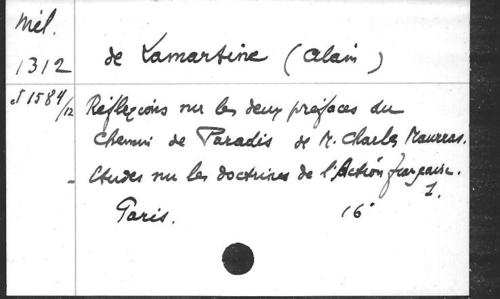 Mél.
1312
et 1584/12
de Lamartine (Alain)
Réflexions sur les deux préfaces du
Chemin de Paradis de M. Charles Maurras.
- Etudes sur les doctrines de l'Action française.
1.
Paris. 16°